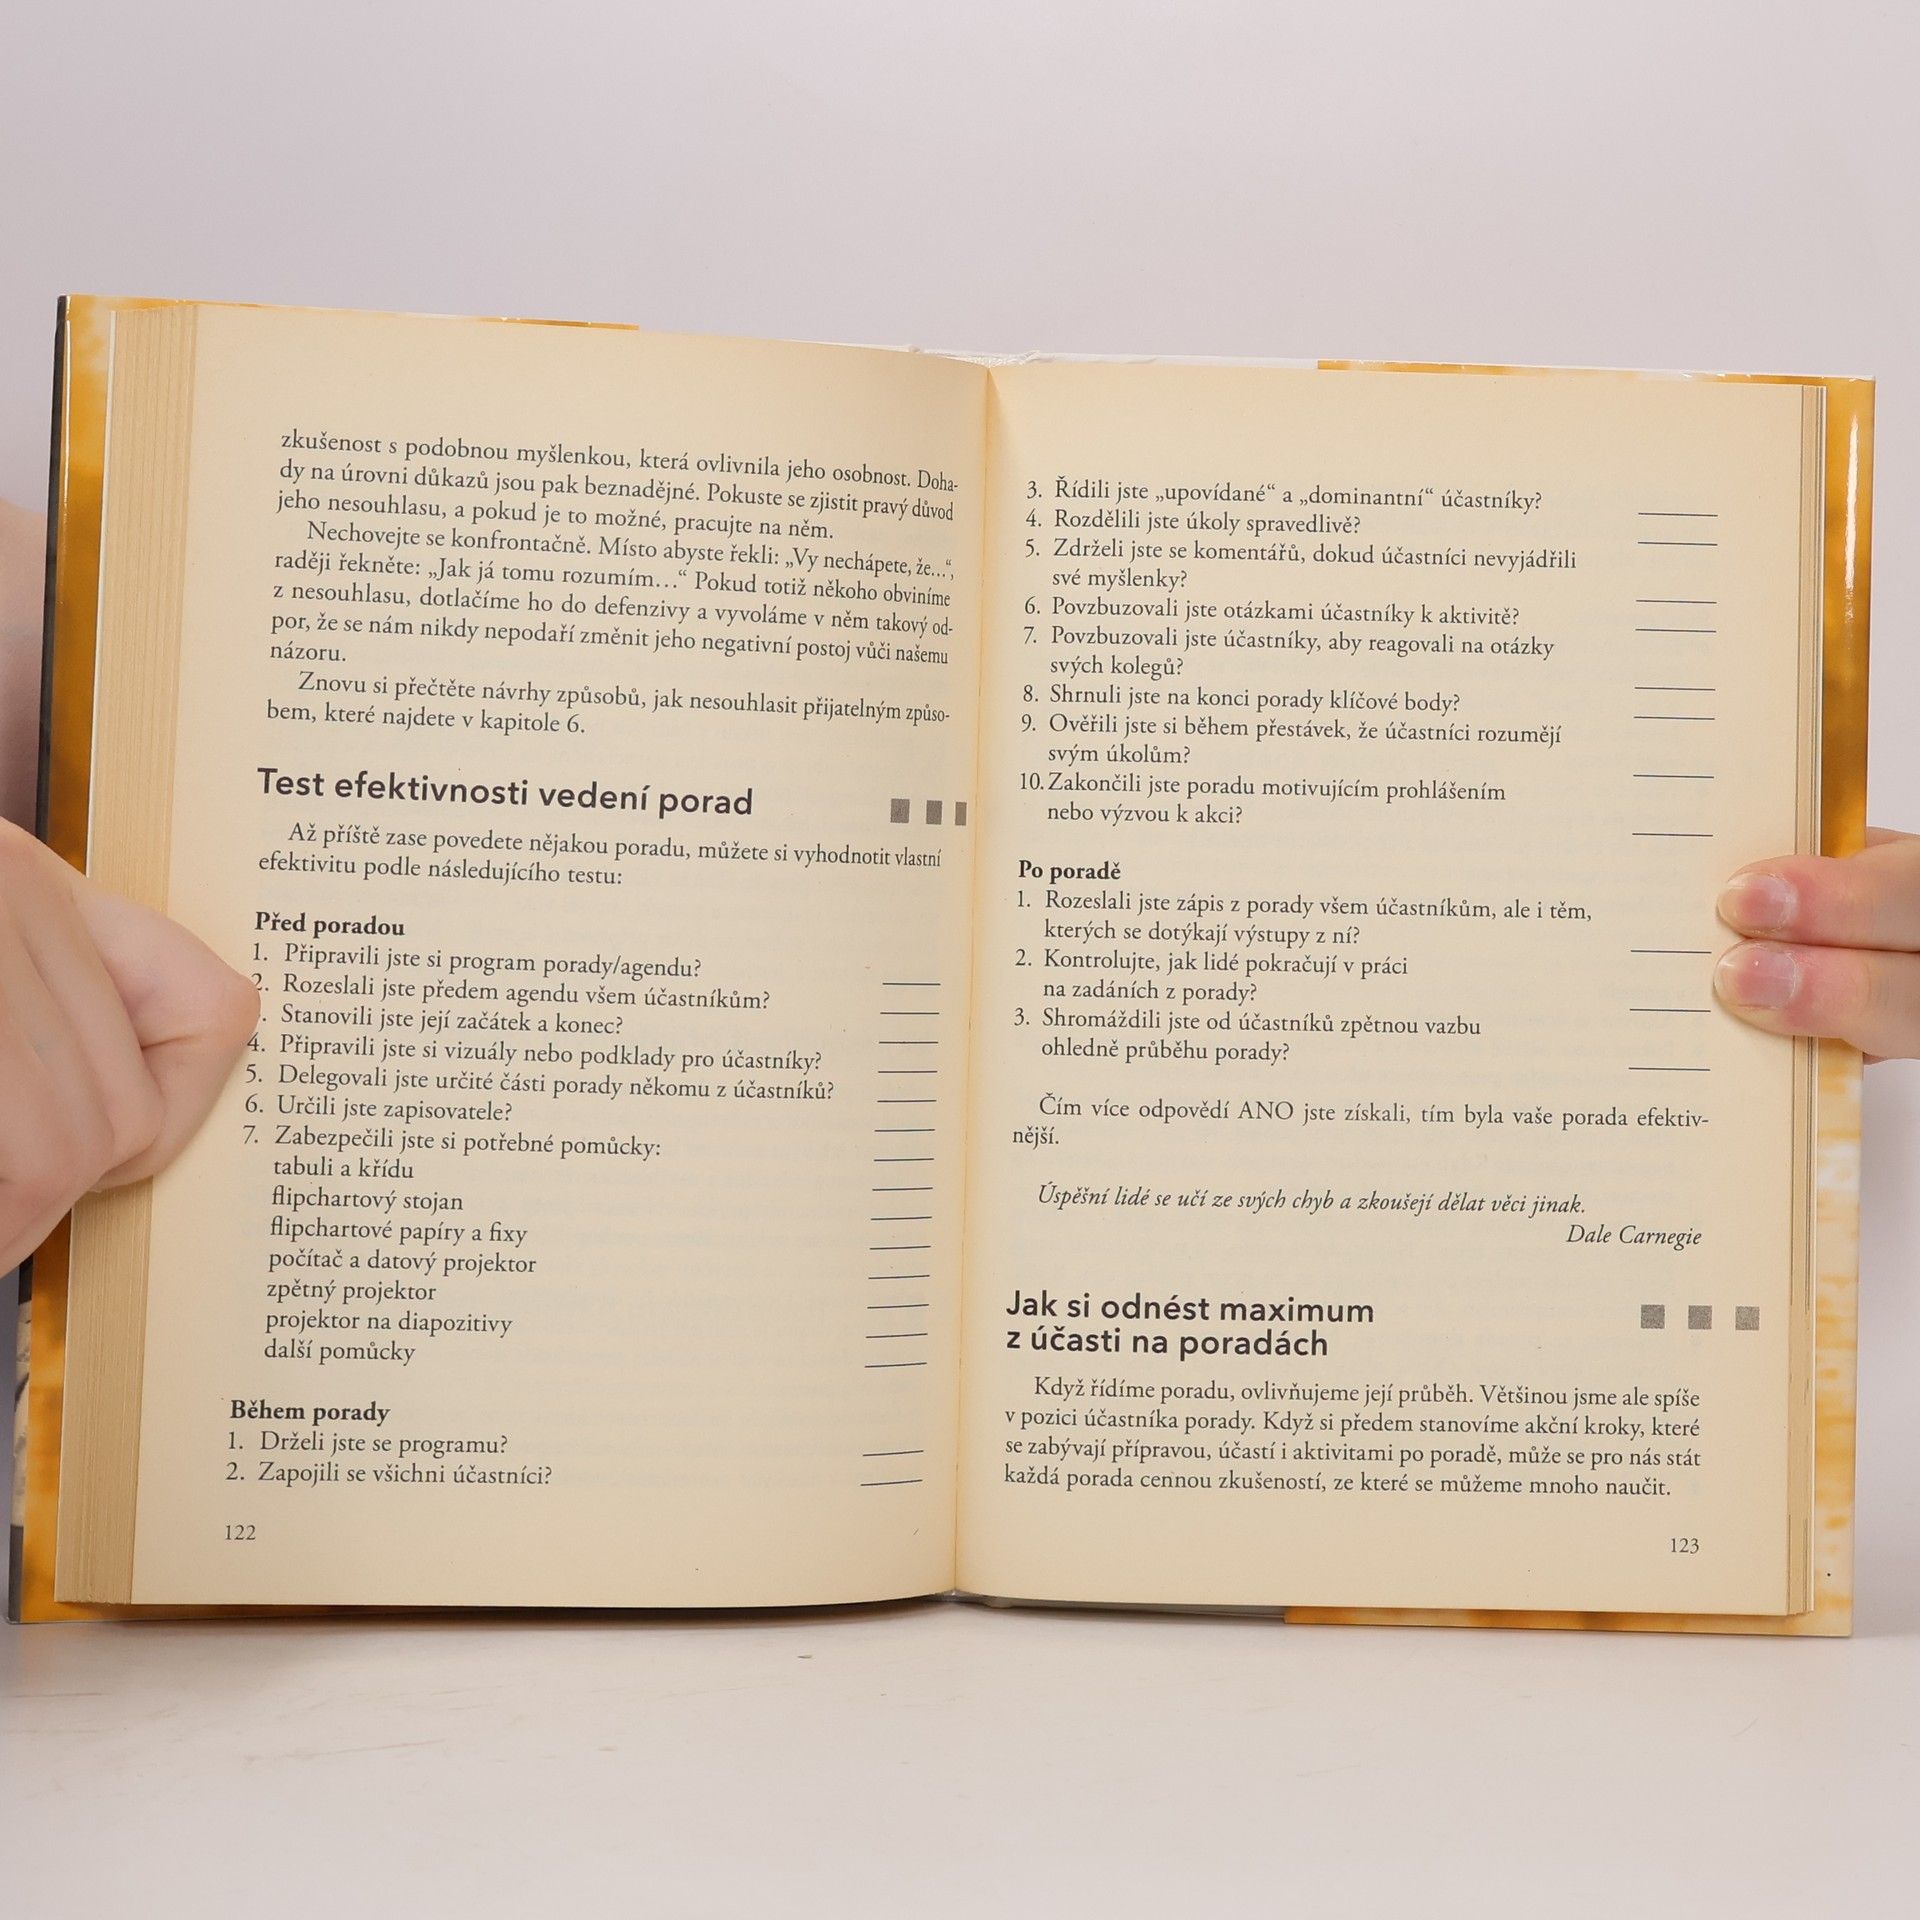 zkušenost s podobnou myšlenkou, která ovlivnila jeho osobnost. Doha-
dy na úrovni důkazů jsou pak beznadějné. Pokuste se zjistit pravý důvod
jeho nesouhlasu, a pokud je to možné, pracujte na něm.
Nechovejte se konfrontačně. Místo abyste řekli: „Vy nechápete, že…“,
raději řekněte: „Jak já tomu rozumím…“ Pokud totiž někoho obviníme
z nesouhlasu, dotlačíme ho do defenzivy a vyvoláme v něm takový od-
por, že se nám nikdy nepodaří změnit jeho negativní postoj vůči našemu
názoru.
Znovu si přečtěte návrhy způsobů, jak nesouhlasit přijatelným způso-
bem, které najdete v kapitole 6.
Test efektivnosti vedení porad
Až příště zase povedete nějakou poradu, můžete si vyhodnotit vlastní
efektivitu podle následujícího testu:
Před poradou
1. Připravili jste si program porady/agendu?
2. Rozeslali jste předem agendu všem účastníkům?
. Stanovili jste její začátek a konec?
4. Připravili jste si vizuály nebo podklady pro účastníky?
5. Delegovali jste určité části porady někomu z účastníků?
6. Určili jste zapisovatele?
7. Zabezpečili jste si potřebné pomůcky:
tabuli a křídu
flipchartový stojan
flipchartové papíry a fixy
počítač a datový projektor
zpětný projektor
projektor na diapozitivy
další pomůcky
Během porady
1. Drželi jste se programu?
2. Zapojili se všichni účastníci?
122
3. Řídili jste „upovídané“ a „dominantní“ účastníky?
4. Rozdělili jste úkoly spravedlivě?
5. Zdrželi jste se komentářů, dokud účastníci nevyjádřili
své myšlenky?
6. Povzbuzovali jste otázkami účastníky k aktivitě?
7. Povzbuzovali jste účastníky, aby reagovali na otázky
svých kolegů?
8. Shrnuli jste na konci porady klíčové body?
9. Ověřili jste si během přestávek, že účastníci rozumějí
svým úkolům?
10. Zakončili jste poradu motivujícím prohlášením
nebo výzvou k akci?
Po poradě
1. Rozeslali jste zápis z porady všem účastníkům, ale i těm,
kterých se dotýkají výstupy z ní?
2. Kontrolujte, jak lidé pokračují v práci
na zadáních z porady?
3. Shromáždili jste od účastníků zpětnou vazbu
ohledně průběhu porady?
Čím více odpovědí ANO jste získali, tím byla vaše porada efektiv-
nější.
Úspěšní lidé se učí ze svých chyb a zkoušejí dělat věci jinak.
Dale Carnegie
Jak si odnést maximum
z účasti na poradách
Když řídíme poradu, ovlivňujeme její průběh. Většinou jsme ale spíše
v pozici účastníka porady. Když si předem stanovíme akční kroky, které
se zabývají přípravou, účastí i aktivitami po poradě, může se pro nás stát
každá porada cennou zkušeností, ze které se můžeme mnoho naučit.
123